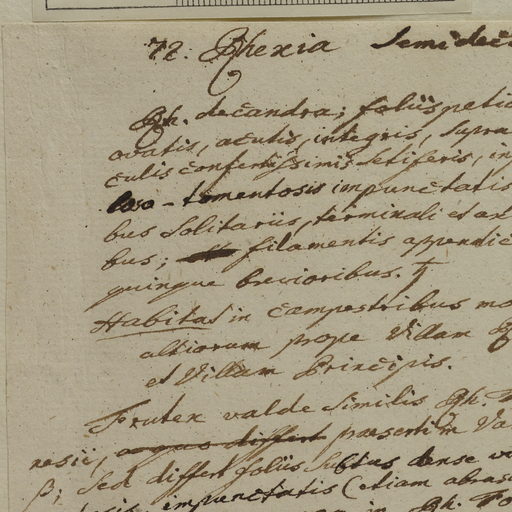 72. Rhexia Semidec
Rh. decandra; foliis petio
ovatis, acutis, integris, supra
culis confertissimis setiferis, in
loso-tomentosis impunctatis
bus solitariis, terminali et ax
bus; filamentis appendic
quinque brevioribus. †
Habitat in campestribus mo
altiorum prope Villam R
et Villam Principis.
Frutex valde similis Rh. F
nesii, a quo differt praesertim Va
β; sed differt foliis subtus dense v
impunctatis (etiam abras
in Rh. Fo